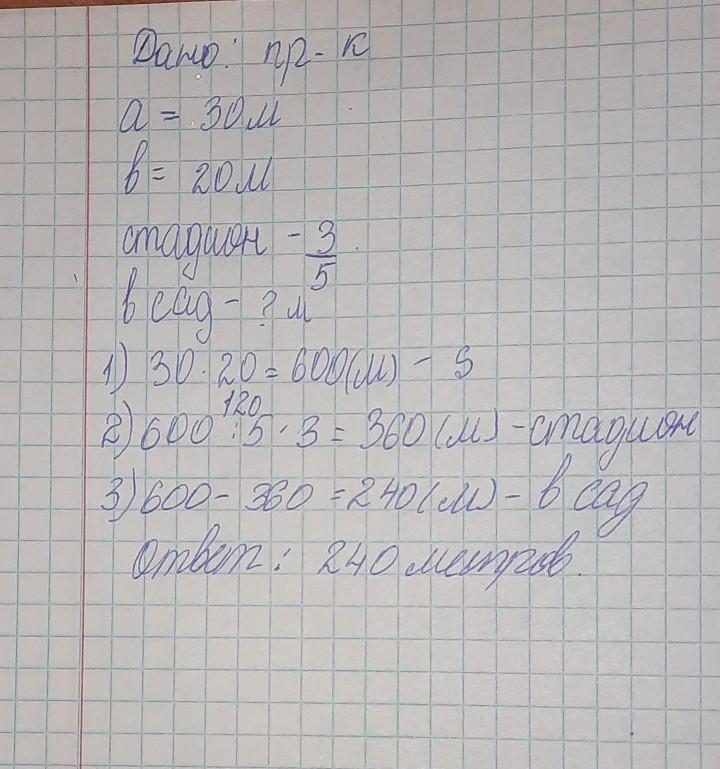 Дано: пр-к
a = 30м
в = 20м
стадион - 3/5
в сад - ? м
1) 30 · 20 = 600(м) - S
120
2) 600 : 5 · 3 = 360 (м) - стадион
3) 600 - 360 = 240(м) - в сад
Ответ: 240 метров.